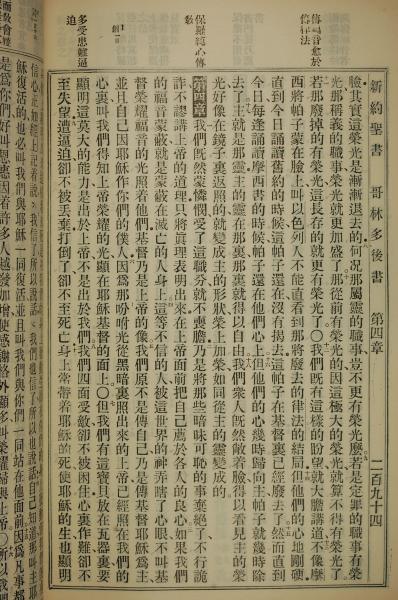 新約聖書 哥林多後書 第四章 二百九十四
臉其實這榮光是漸漸退去的何况那屬靈的職事豈不更有榮光麼若是定罪的職事有榮
光那稱義的職事榮光就更加盛了那從前有榮光的因這極大的榮光就算不得有榮光了
若那廢掉的有榮光這長存的就更有榮光了○我們既有這樣的盼望就大膽講道不像摩
西將帕子蒙在臉上叫以色列人不能直看到那將廢去的律法的結局但他們的心地剛硬
直到今日誦讀舊約的時候這帕子還在沒有揭去這帕子在基督裏已經廢去了然而直到
今日每逢誦讀摩西書的時候帕子還在他們心上但他們的心幾時歸向主帕子就幾時除
去了主就是那靈主的靈在那裏那裏就得以自由我們衆人既然敞着臉得以看見主的榮
光好像在鏡子裏返照的就變成主的形狀榮上加榮如同從主的靈變成的
第四章 我們既然蒙憐憫受了這職分就不喪膽乃是將那些暗昧可恥的事棄絕了不行詭
詐不謬講上帝的道理只將真理表明出來在上帝面前把自己薦於各人的良心如果我們
的福音蒙蔽就是蒙蔽在滅亡的人身上這等不信的人被這世界的神弄瞎了心眼不叫基
督榮耀福音的光照着他們基督乃是上帝的像我們原不是傳自己乃是傳基督耶穌爲主
並且自己因耶穌作你們的僕人因爲那吩咐光從黑暗裏照出來的上帝已經照在我們的
心裏叫我們得知上帝榮耀的光顯在耶穌基督的面上○但我們有這寶貝放在瓦器裏要
顯明這莫大的能力是出於上帝不是出於我們我們四面受敵卻不被困住心裏作難卻不
至失望遭逼迫卻不被丟棄打倒了卻不至死亡身上常帶着耶穌的死使耶穌的生也顯明
傳福音愈於
傳律法
保羅純心傳
多受患難逼
迫